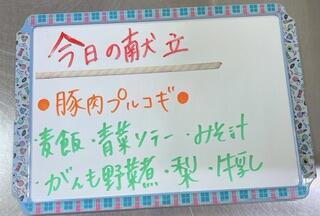 今日の献立
●豚肉プルコギ●
・麦飯・青菜ソテー・みそ汁
・がんも野菜煮・梨・牛乳